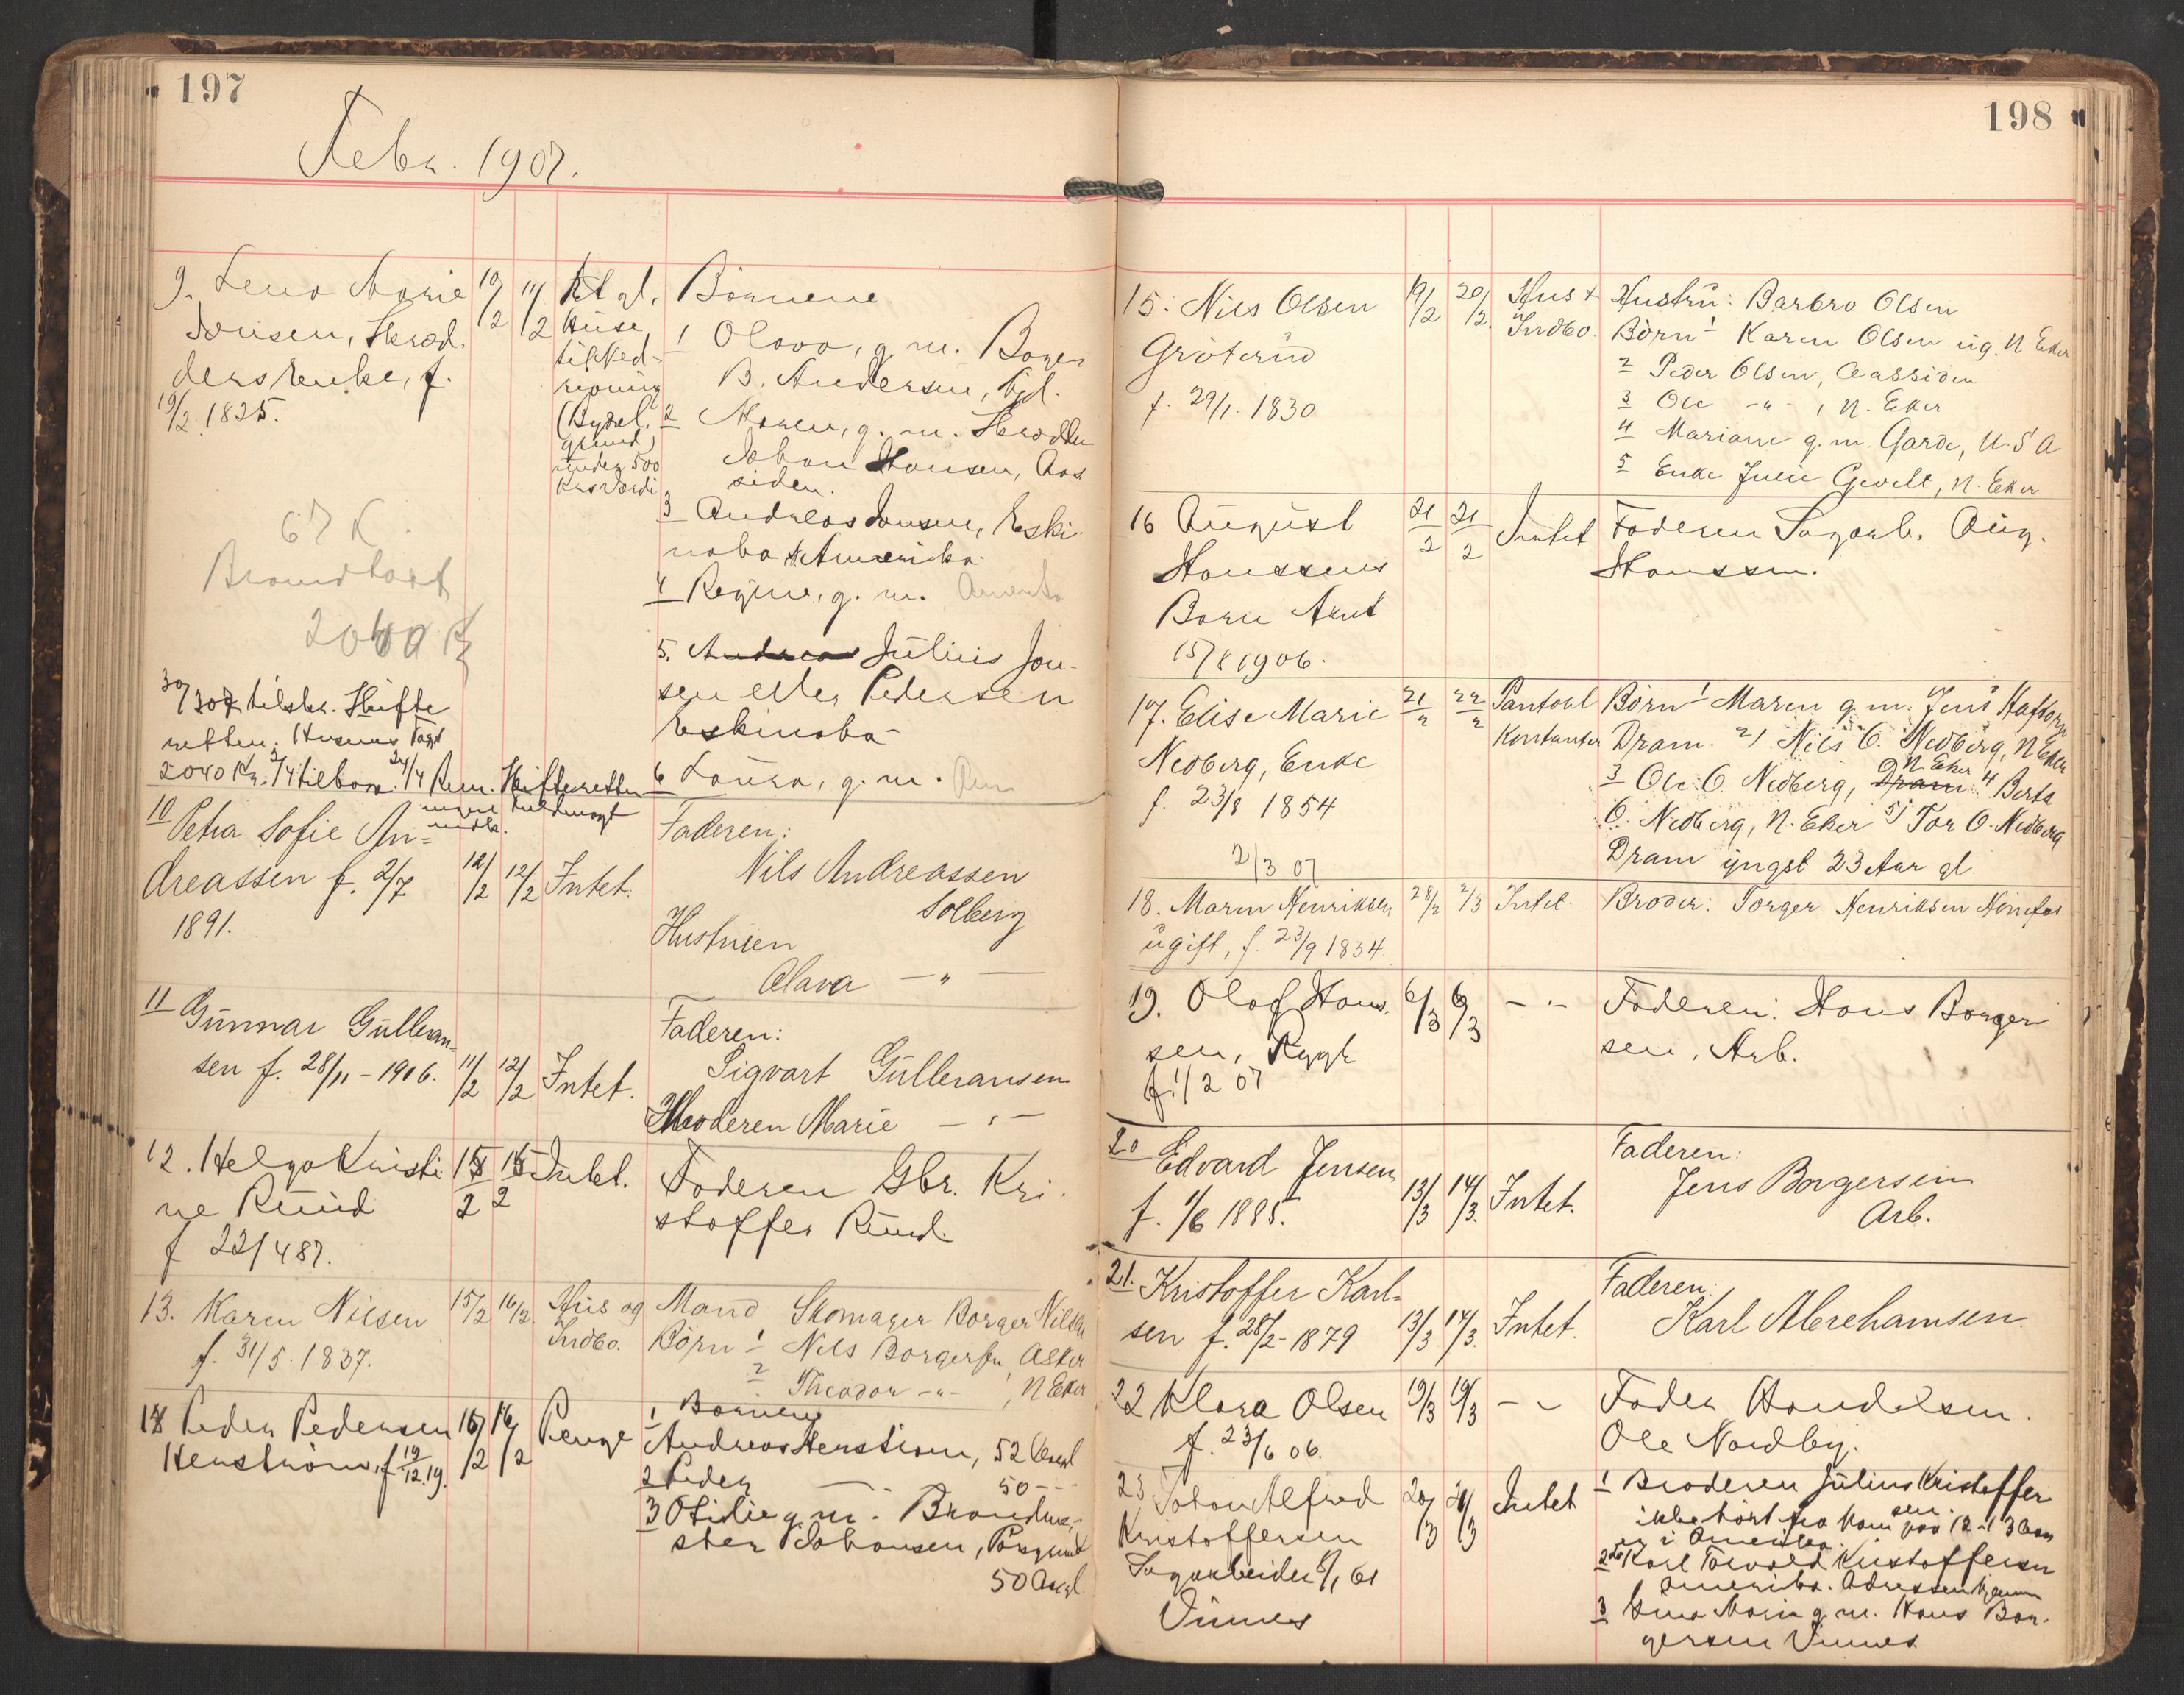 197
Febr. 1907.
9. Lena Marie
Jonsen, Skræd.
dersenke, f.
19/2 1825.
10/2 11/2
Et gl.
Huse
(Bygsel.
grund)
under 500
Krs værdi
Børnene
1 Olava, g. m. Borger
B. Andersen,
2 Maren, g. m. Skrædder
Johan Hansen, Aas
siden.
3 Andreas Jonsen, Eski
naba N. Amerika
4 Regine, g. m. Amerika
5. Andreas Julius Jon-
sen eller Pedersen
Eskinaba
6 Laura, g. m.
67 K
Brandtaxt
2040 Kr
tilskr. Skifte
retten.
2040 Kr. Skifteretten
10 Petra Sofie An-
dreassen f. 2/7
1891.
12/2 12/2 Intet.
Faderen:
Nils Andreassen
Solberg
Hustruen
Olava — " —
11 Gunnar Gulbran-
sen f. 28/11 - 1906.
11/2 12/2 Intet.
Faderen:
Sigvart Gulbransen
Moderen Marie — " —
12. Helga Kristi
ne Ruud
f 22/4 87.
15/2 15/2 Intet.
Faderen Gbr. Kri
stoffer Ruud.
13. Karen Nilsen
f. 31/5. 1837.
15/2 16/2 Hus og
Indbo.
Mand Skomager Borger Nilsen
Børn 1 Nils Borgersen Asker
2 Theodor - " - , N Eker
14 Peder Pedersen
Henstrøm, f 19/12.19.
16/2 16/2 Penge
Børnene
1 Andreas Henstrøm, 52 Aar gl
2 Peder — 50 - -
3 Otilie g. m. Brandme-
ster Johansen, Porsgrund
50 Aar gl.
198
15. Nils Olsen
Gröterud
f. 29/1. 1830
19/2 20/2. Hus +
Indbo.
Hustru: Barbro Olsen
Børn 1 Karen Olsen ug. N Eker
2 Peder Olsen, Aassiden
3 Ole - " - , N. Eker
4 Mariane g. m. Garde, U. S A
5 Enke Julie Gevelt, N. Eker
16 August
Hanssens
Barn Arnt
15/8 1906.
21/2 21/2 Intet
Faderen Sagarb. Aug.
Hanssen.
17. Elise Marie
Nedberg, Enke
f. 23/8 1854
2/3 07
21/2 22/2 Pantobl
Kontanter
Børn 1 Maren g. m. Jens
Dram. 2) Nils O. Nedberg, N Eker
3 Ole O. Nedberg, Dram N Eker 4 Berta
O. Nedberg, N. Eker 5) Tor O. Nedberg
Dram yngst 23 Aar gl.
18. Maren Henriksen
ugift, f. 23/9 1834.
28/2 2/3 Intet.
Broder: Torger Henriksen Hönefos
19. Olaf Han-
sen, Rygh
f. 1/2 07
6/3 6/3 - " -
Faderen: Hans Borger
sen, Arb.
20 Edvard Jensen
f. 1/6 1885.
13/3 14/3. Intet.
Faderen:
Jens Borgersen
Arb.
21. Kristoffer Karl-
sen f. 28/2 - 1879
13/3 14/3. Intet.
Faderen:
Karl Abrehamsen.
22 Klara Olsen
f. 23/6 06.
19/3 19/3 - " -
Fader Handelsm.
Ole Nordby.
23 Johan Alfred
Kristoffersen
Sagarbeider 8/1 61
Vinnes
20/3 20/3 Intet
1 Broderen Julius Kristoffer
sen.
ikke hørt fra ham paa 12-13 Aar
er i Amerika.
2 Karl Torvald Kristoffersen
Amerika. Adressen
3 Lina Marie g. m. Hans Bor-
gersen Vinnes